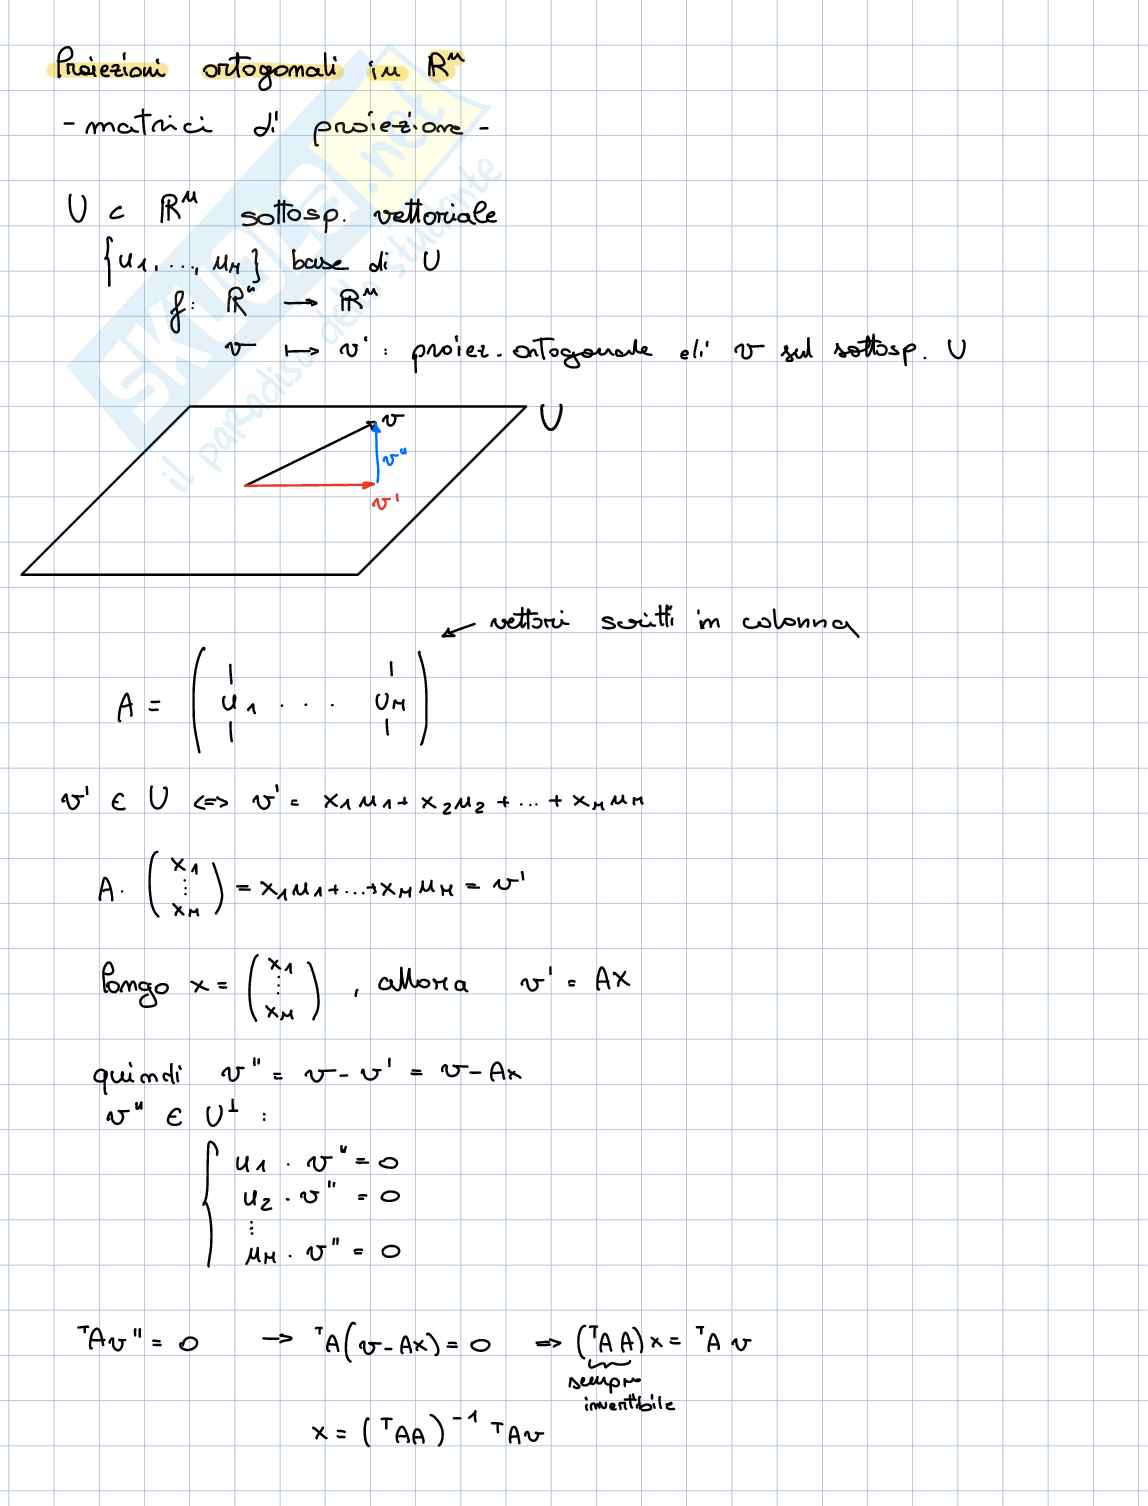 Proiezioni ortogonali in ℝⁿ
- matrici di proiezione -
U ⊂ ℝⁿ sottosp. vettoriale
{u₁, ..., u_M} base di U
f: ℝⁿ → ℝⁿ
v ↦ v' : proiez. ortogonale di v sul sottosp. U
v U
v''
v'
← vettori scritti in colonna
A = (u₁ . . . u_M)
v' ∈ U <=> v' = x₁u₁ + x₂u₂ + ... + x_M u_M
A · (x₁ ⋮ x_M) = x₁u₁ + ... + x_M u_M = v'
Pongo x = (x₁ ⋮ x_M) , allora v' = Ax
quindi v'' = v - v' = v - Ax
v'' ∈ U⊥ :
u₁ · v'' = 0
u₂ · v'' = 0
⋮
u_M · v'' = 0
ᵀAv'' = 0 → ᵀA(v - Ax) = 0 => (ᵀAA)x = ᵀAv
sempre
invertibile
x = (ᵀAA)⁻¹ ᵀAv
SKUOLA.net
il paradiso dello studente